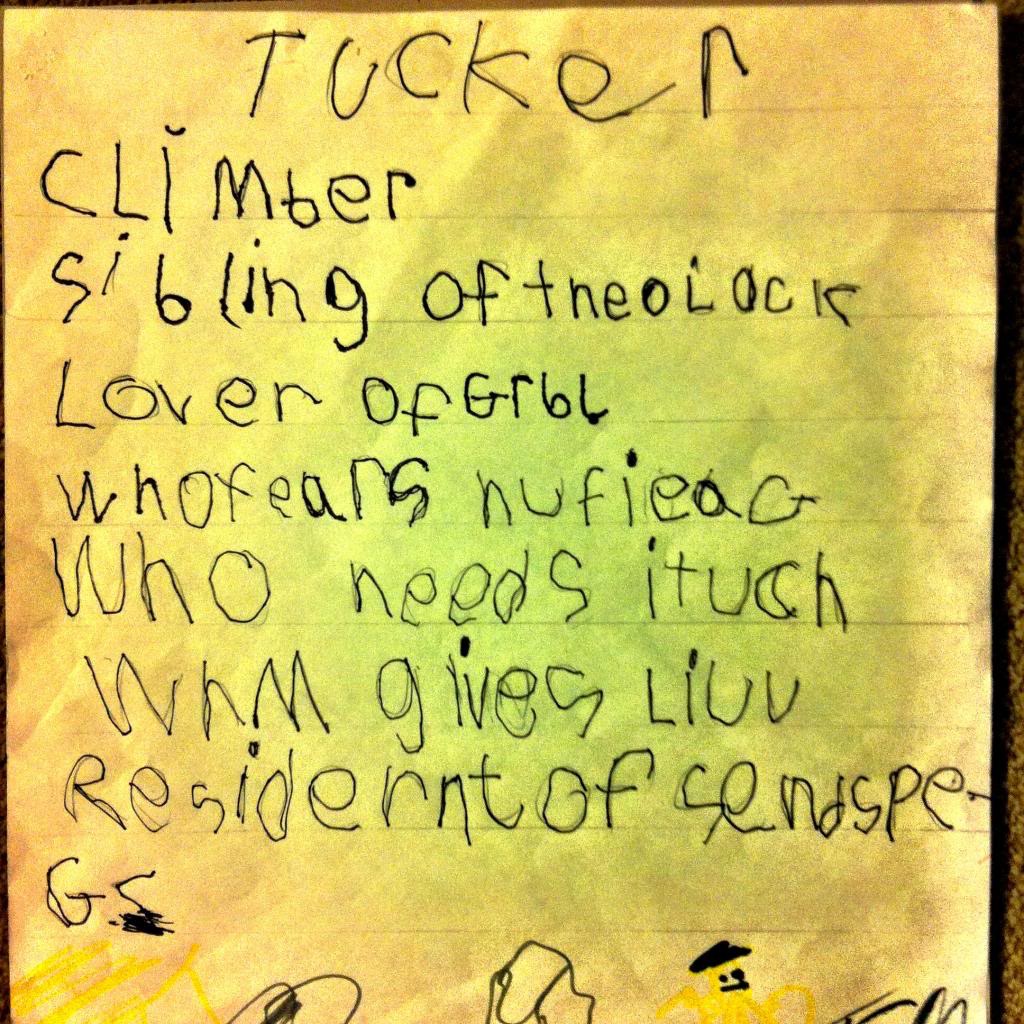 Tucker
CLiMber
sibling of theo Lack
Lover of Grbl
who fears nufieac
Who needs ituch
WhM gives Liuu
Residernt of Sendspe-
G.S